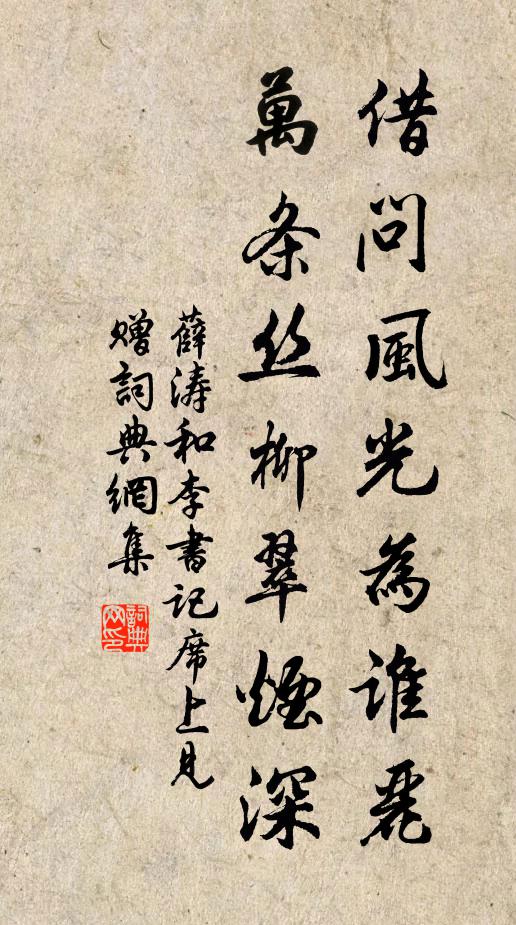 借问風光為谁麗
萬条丝柳翠煙深
薛涛和李書记席上见
赠詞典網集
詞典网印